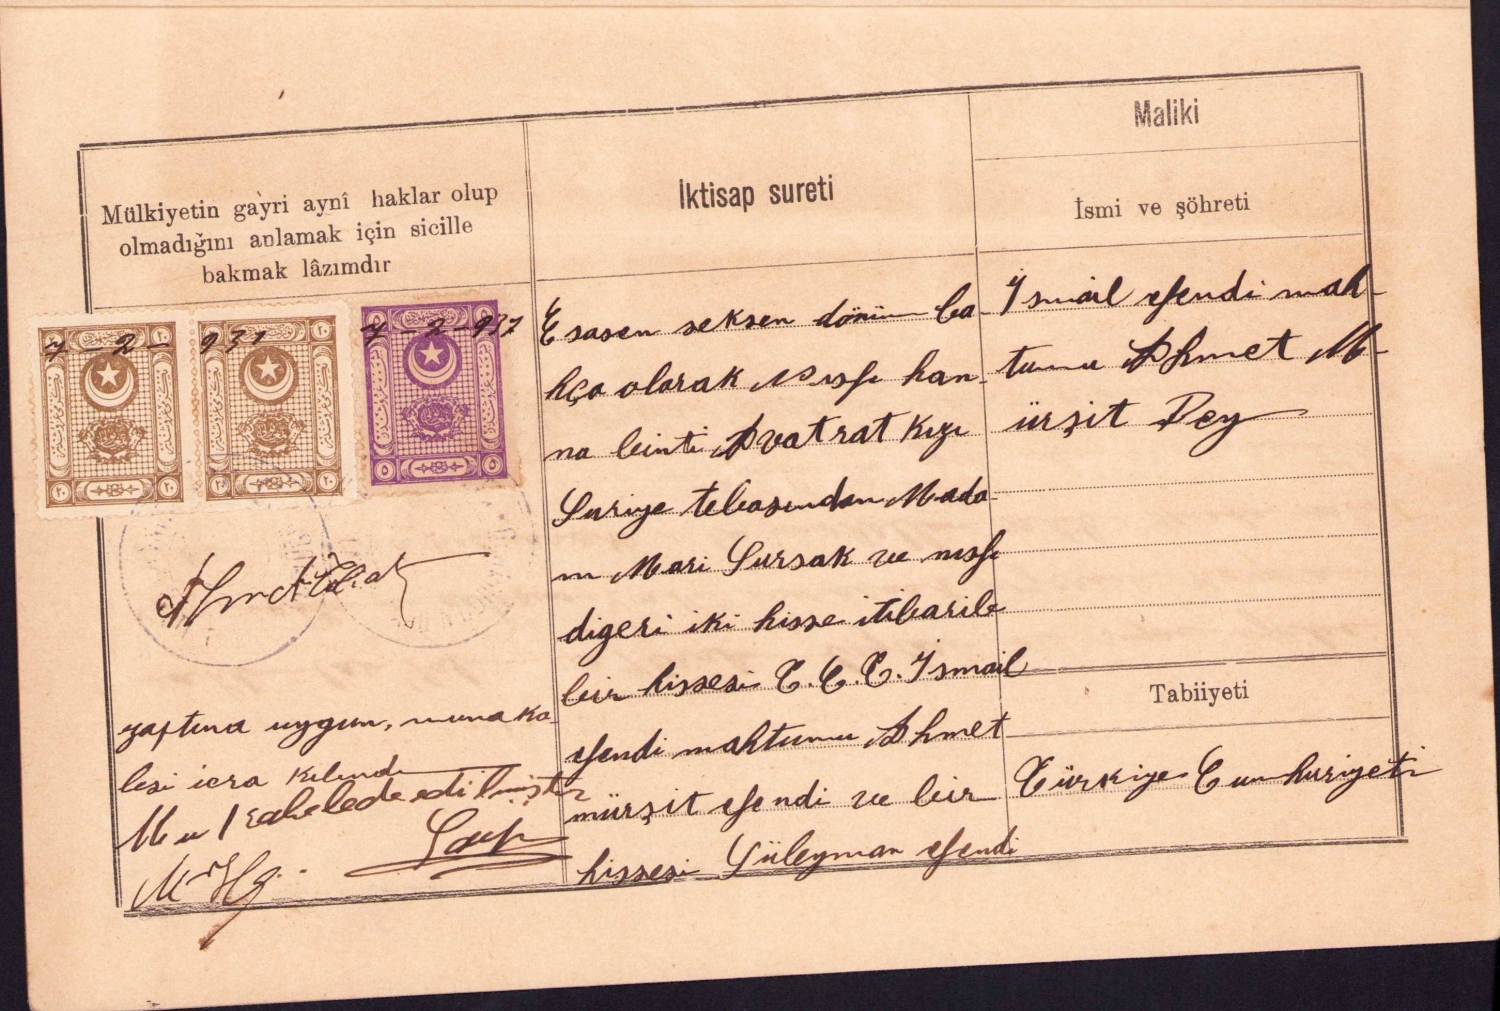 Mülkiyetin gayri aynî haklar olup
olmadığını anlamak için sicille
bakmak lâzımdır
7 - 2 - 931
7 - 2 - 931
٢٠ ٢٠
٢٠ ٢٠
٥ ٥
zaptına uygun, munaka
lesi icra kılındı
Mukabele de edilmiştir
İktisap sureti
Esasen seksen dönüm ba-
hça olarak Nısfı han-
na binti kızı
Suriye tebasından Mada-
m Mari Sursak ve nısfı
digeri iki hisse itibarile
bir hissesi T. C. T. Ismail
efendi mahtumu Ahmet
mürşit efendi ve bir
hissesi Süleyman efendi
Maliki
İsmi ve şöhreti
Ismail efendi mah-
tumu Ahmet M-
ürşit Bey
Tabiiyeti
Türkiye Cumhuriyeti